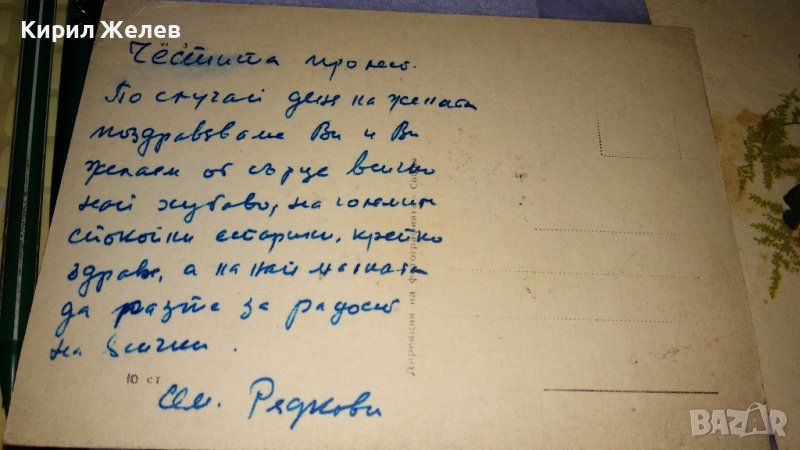 Кирил Желев
Честита пролет.
По случай деня на жената
поздравяваме Ви и Ви
желаем от сърце всичко
най хубаво, на големите
спокойни старини, крепко
здраве, а на най малката
да расте за радост
на всички.
10 ст
Сем. Рядкови
Дирекция на фотографията
BAZAR